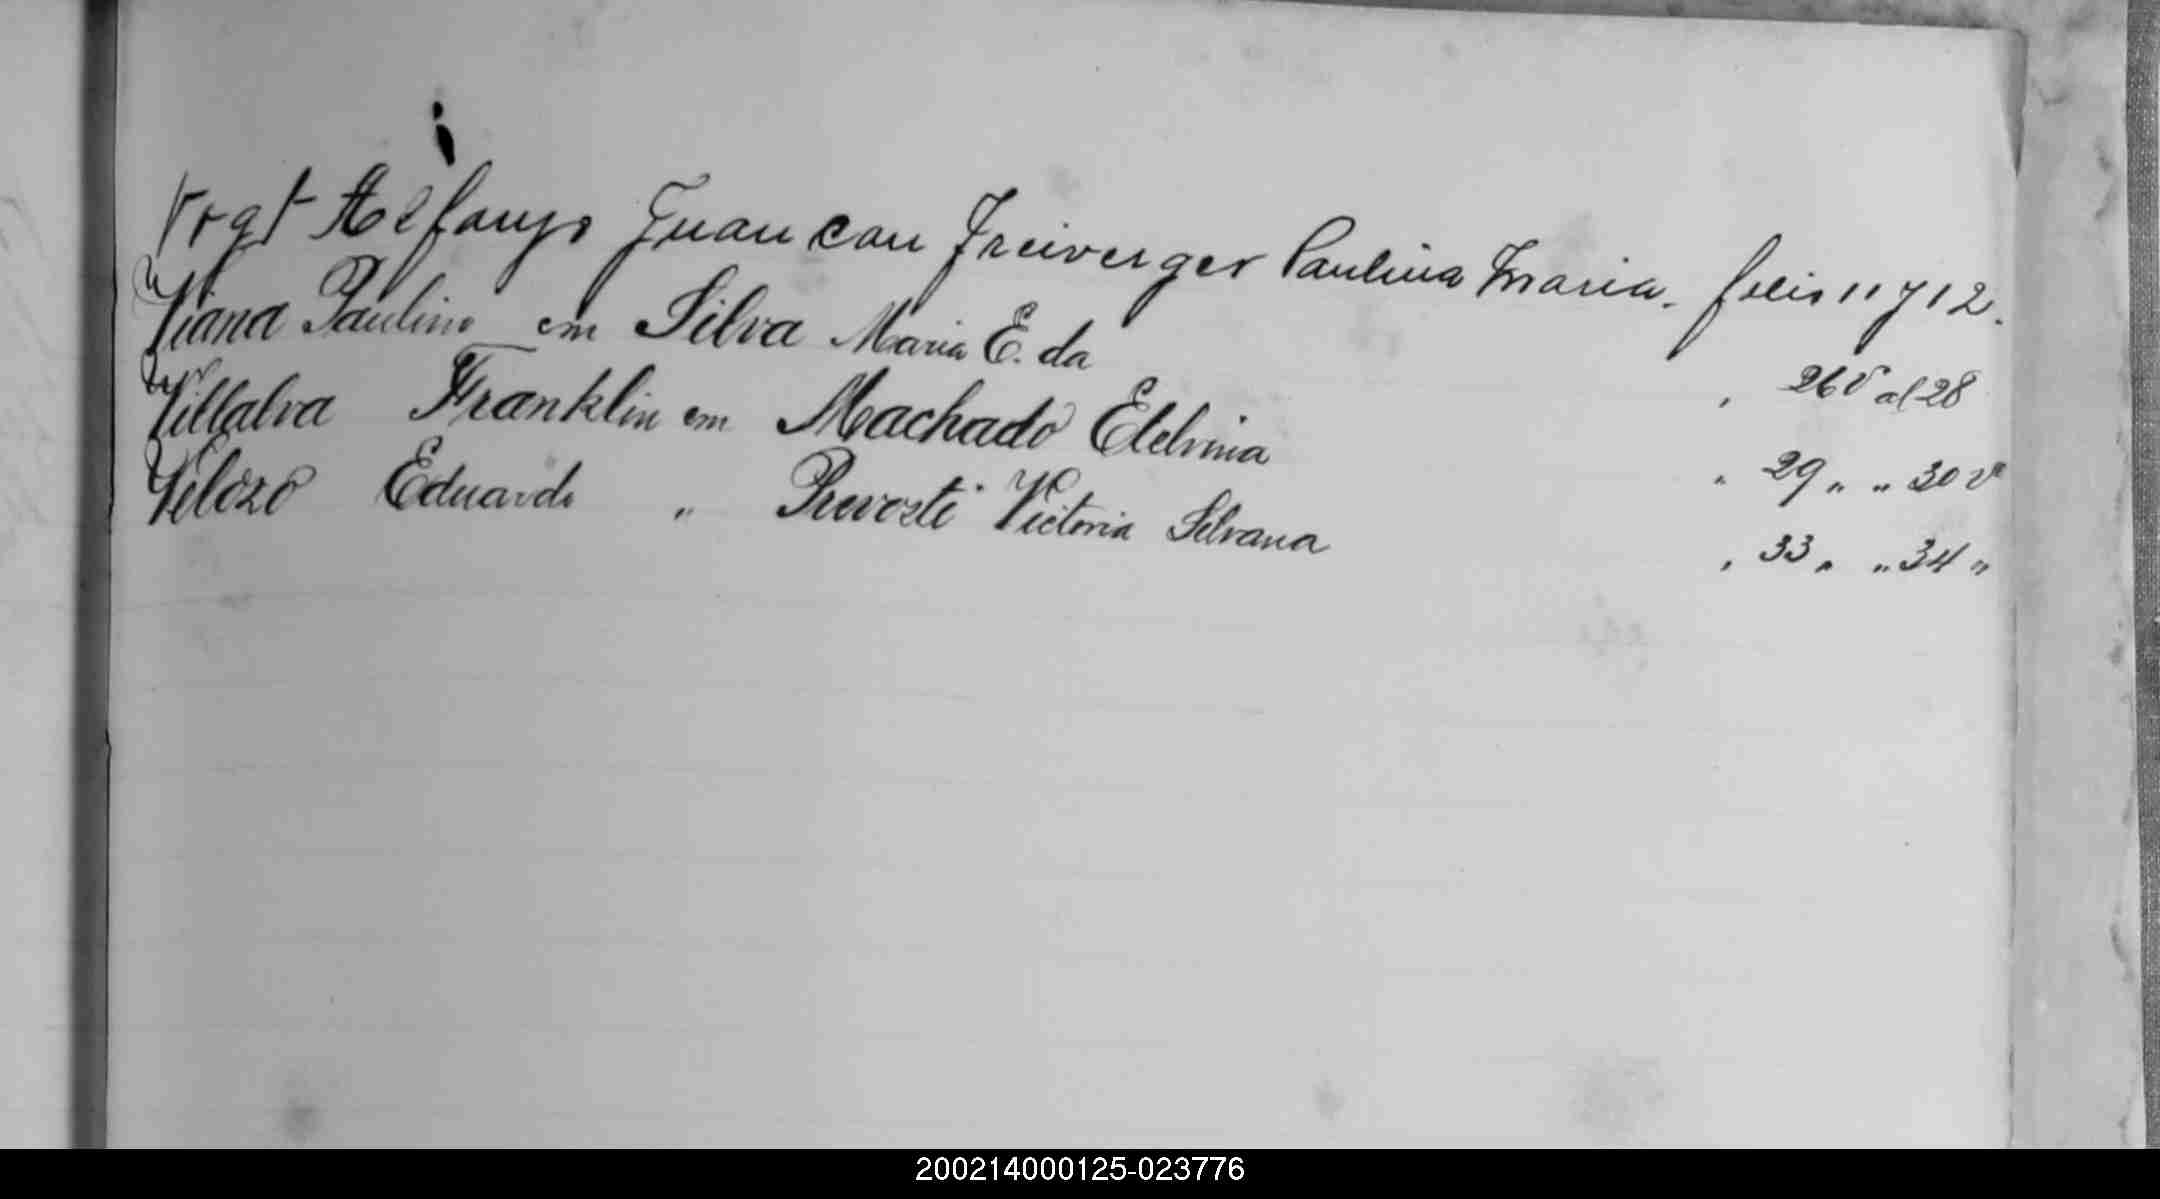 Vogt Alfonso Juan con Freiverger Paulina Maria. folio 11 y 12.
Viana Paulino con Silva Maria E. da „ 26 v al 28
Villalva Franklin con Machado Etelvina „ 29 „ „ 30 v
Velozo Eduardo „ Prevosti Victoria Silvana „ 33 „ „ 34 „
200214000125-023776